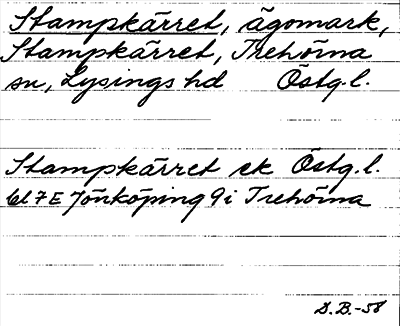 Stampkärret, ägomark,
Stampkärret, Trehörna
sn, Lysings hd Östg.l.
Stampkärret ek Östg.l.
bl 7E Jönköping 9i Trehörna
D.B.-58